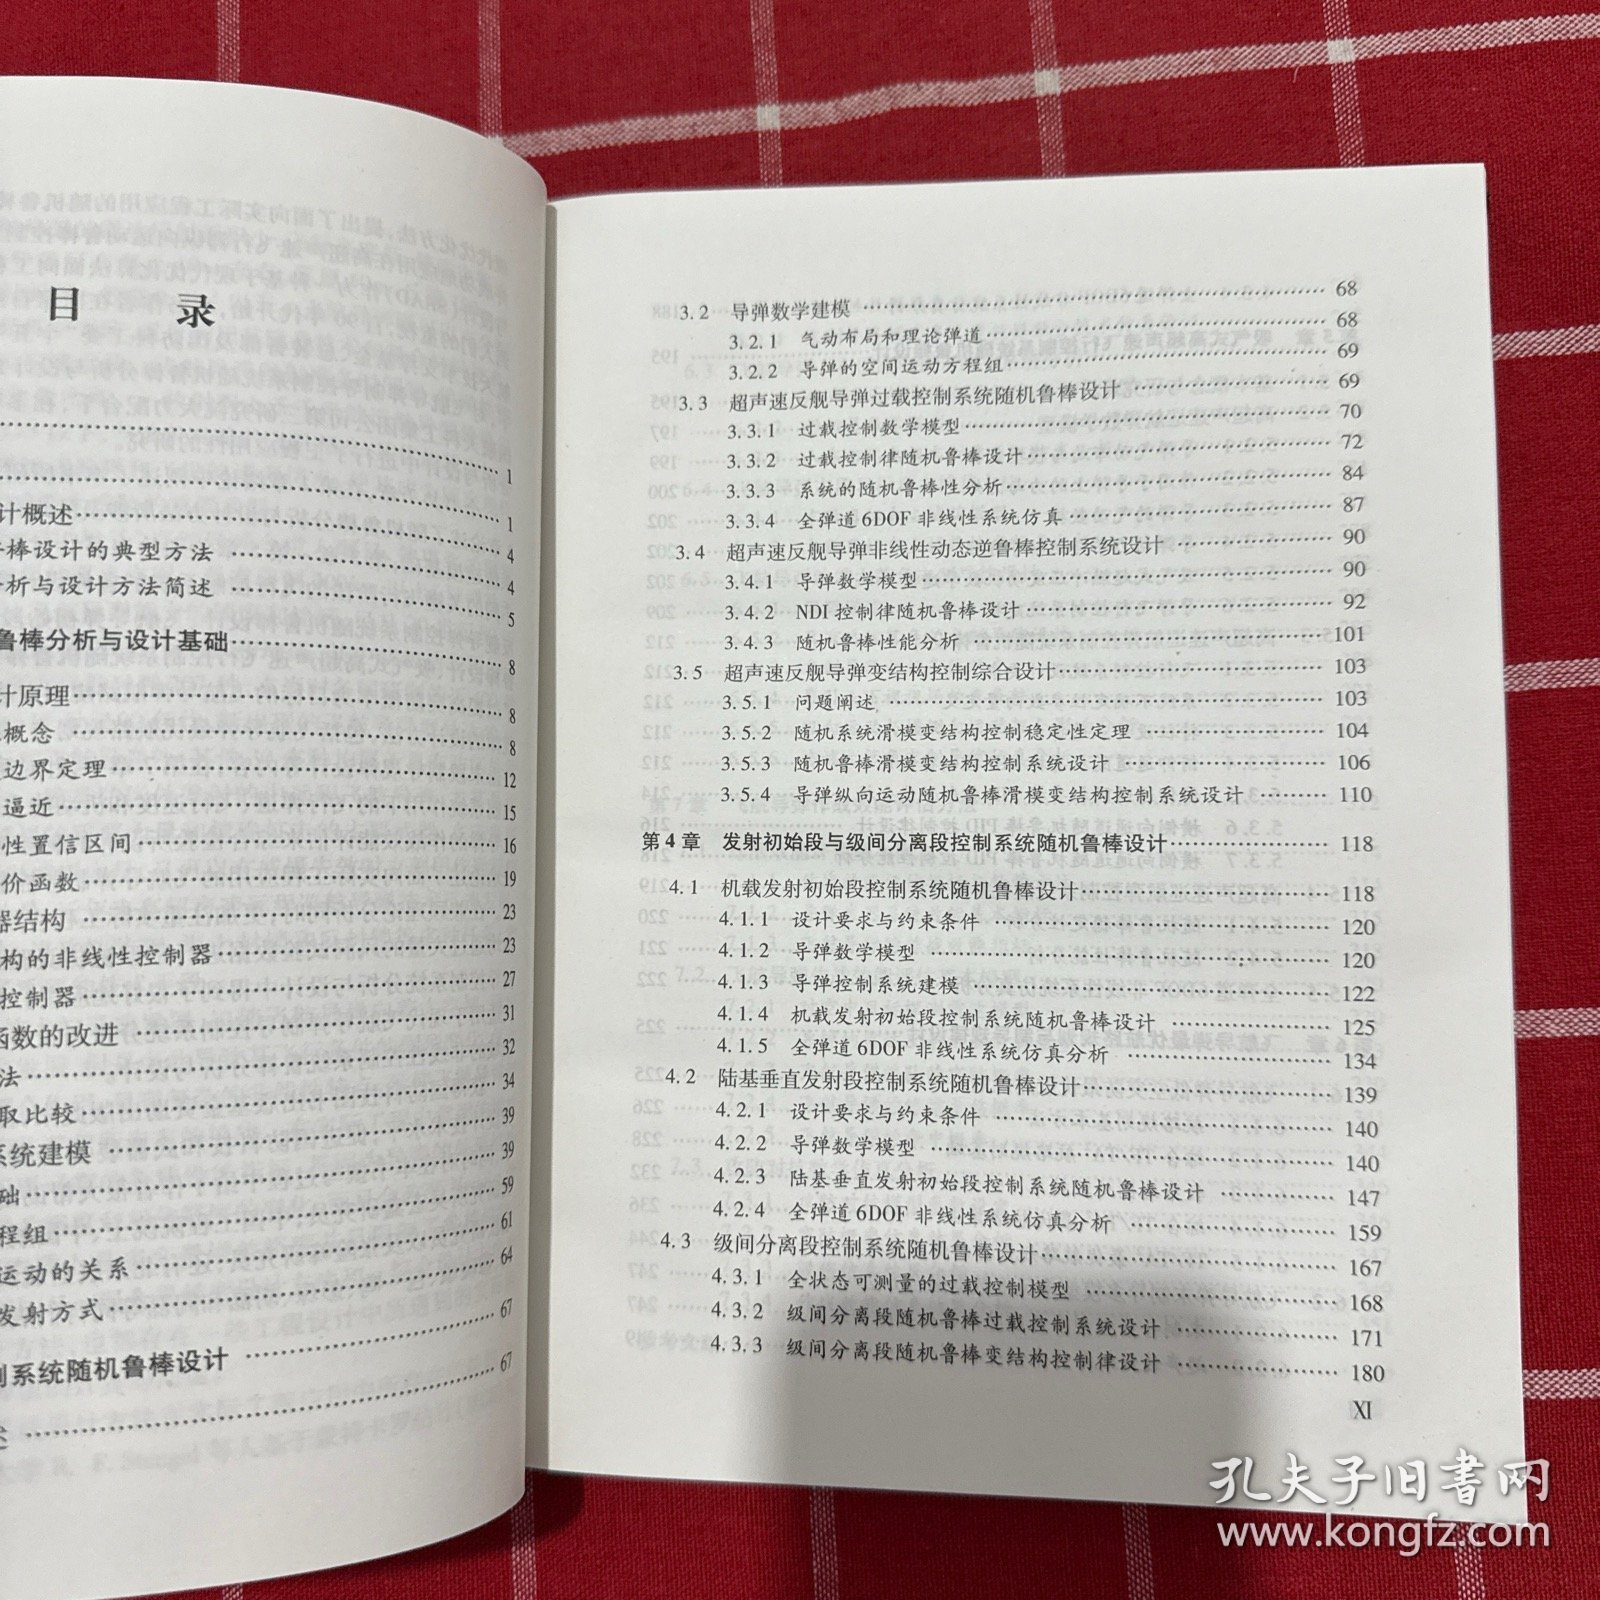 目 录
1
计概述 1
棒设计的典型方法 4
析与设计方法简述 4
5
鲁棒分析与设计基础
8
计原理
8
概念
8
边界定理
12
逼近
15
性置信区间
16
价函数
19
器结构
23
构的非线性控制器
23
控制器
27
函数的改进
31
法
32
取比较
34
39
系统建模
39
础
59
程组
61
运动的关系
64
发射方式
67
制系统随机鲁棒设计
67
述
3.2 导弹数学建模 68
3.2.1 气动布局和理论弹道 68
3.2.2 导弹的空间运动方程组 69
3.3 超声速反舰导弹过载控制系统随机鲁棒设计 69
3.3.1 过载控制数学模型 70
3.3.2 过载控制律随机鲁棒设计 72
3.3.3 系统的随机鲁棒性分析 84
3.3.4 全弹道6DOF非线性系统仿真 87
3.4 超声速反舰导弹非线性动态逆鲁棒控制系统设计 90
3.4.1 导弹数学模型 90
3.4.2 NDI控制律随机鲁棒设计 92
3.4.3 随机鲁棒性能分析 101
3.5 超声速反舰导弹变结构控制综合设计 103
3.5.1 问题阐述 103
3.5.2 随机系统滑模变结构控制稳定性定理 104
3.5.3 随机鲁棒滑模变结构控制系统设计 106
3.5.4 导弹纵向运动随机鲁棒滑模变结构控制系统设计 110
第4章 发射初始段与级间分离段控制系统随机鲁棒设计 118
4.1 机载发射初始段控制系统随机鲁棒设计 118
4.1.1 设计要求与约束条件 120
4.1.2 导弹数学模型 120
4.1.3 导弹控制系统建模 122
4.1.4 机载发射初始段控制系统随机鲁棒设计 125
4.1.5 全弹道6DOF非线性系统仿真分析 134
4.2 陆基垂直发射段控制系统随机鲁棒设计 139
4.2.1 设计要求与约束条件 140
4.2.2 导弹数学模型 140
4.2.3 陆基垂直发射初始段控制系统随机鲁棒设计 147
4.2.4 全弹道6DOF非线性系统仿真分析 159
4.3 级间分离段控制系统随机鲁棒设计 167
4.3.1 全状态可测量的过载控制模型 168
4.3.2 级间分离段随机鲁棒过载控制系统设计 171
4.3.3 级间分离段随机鲁棒变结构控制律设计 180
XI
孔夫子旧书网
www.kongfz.com